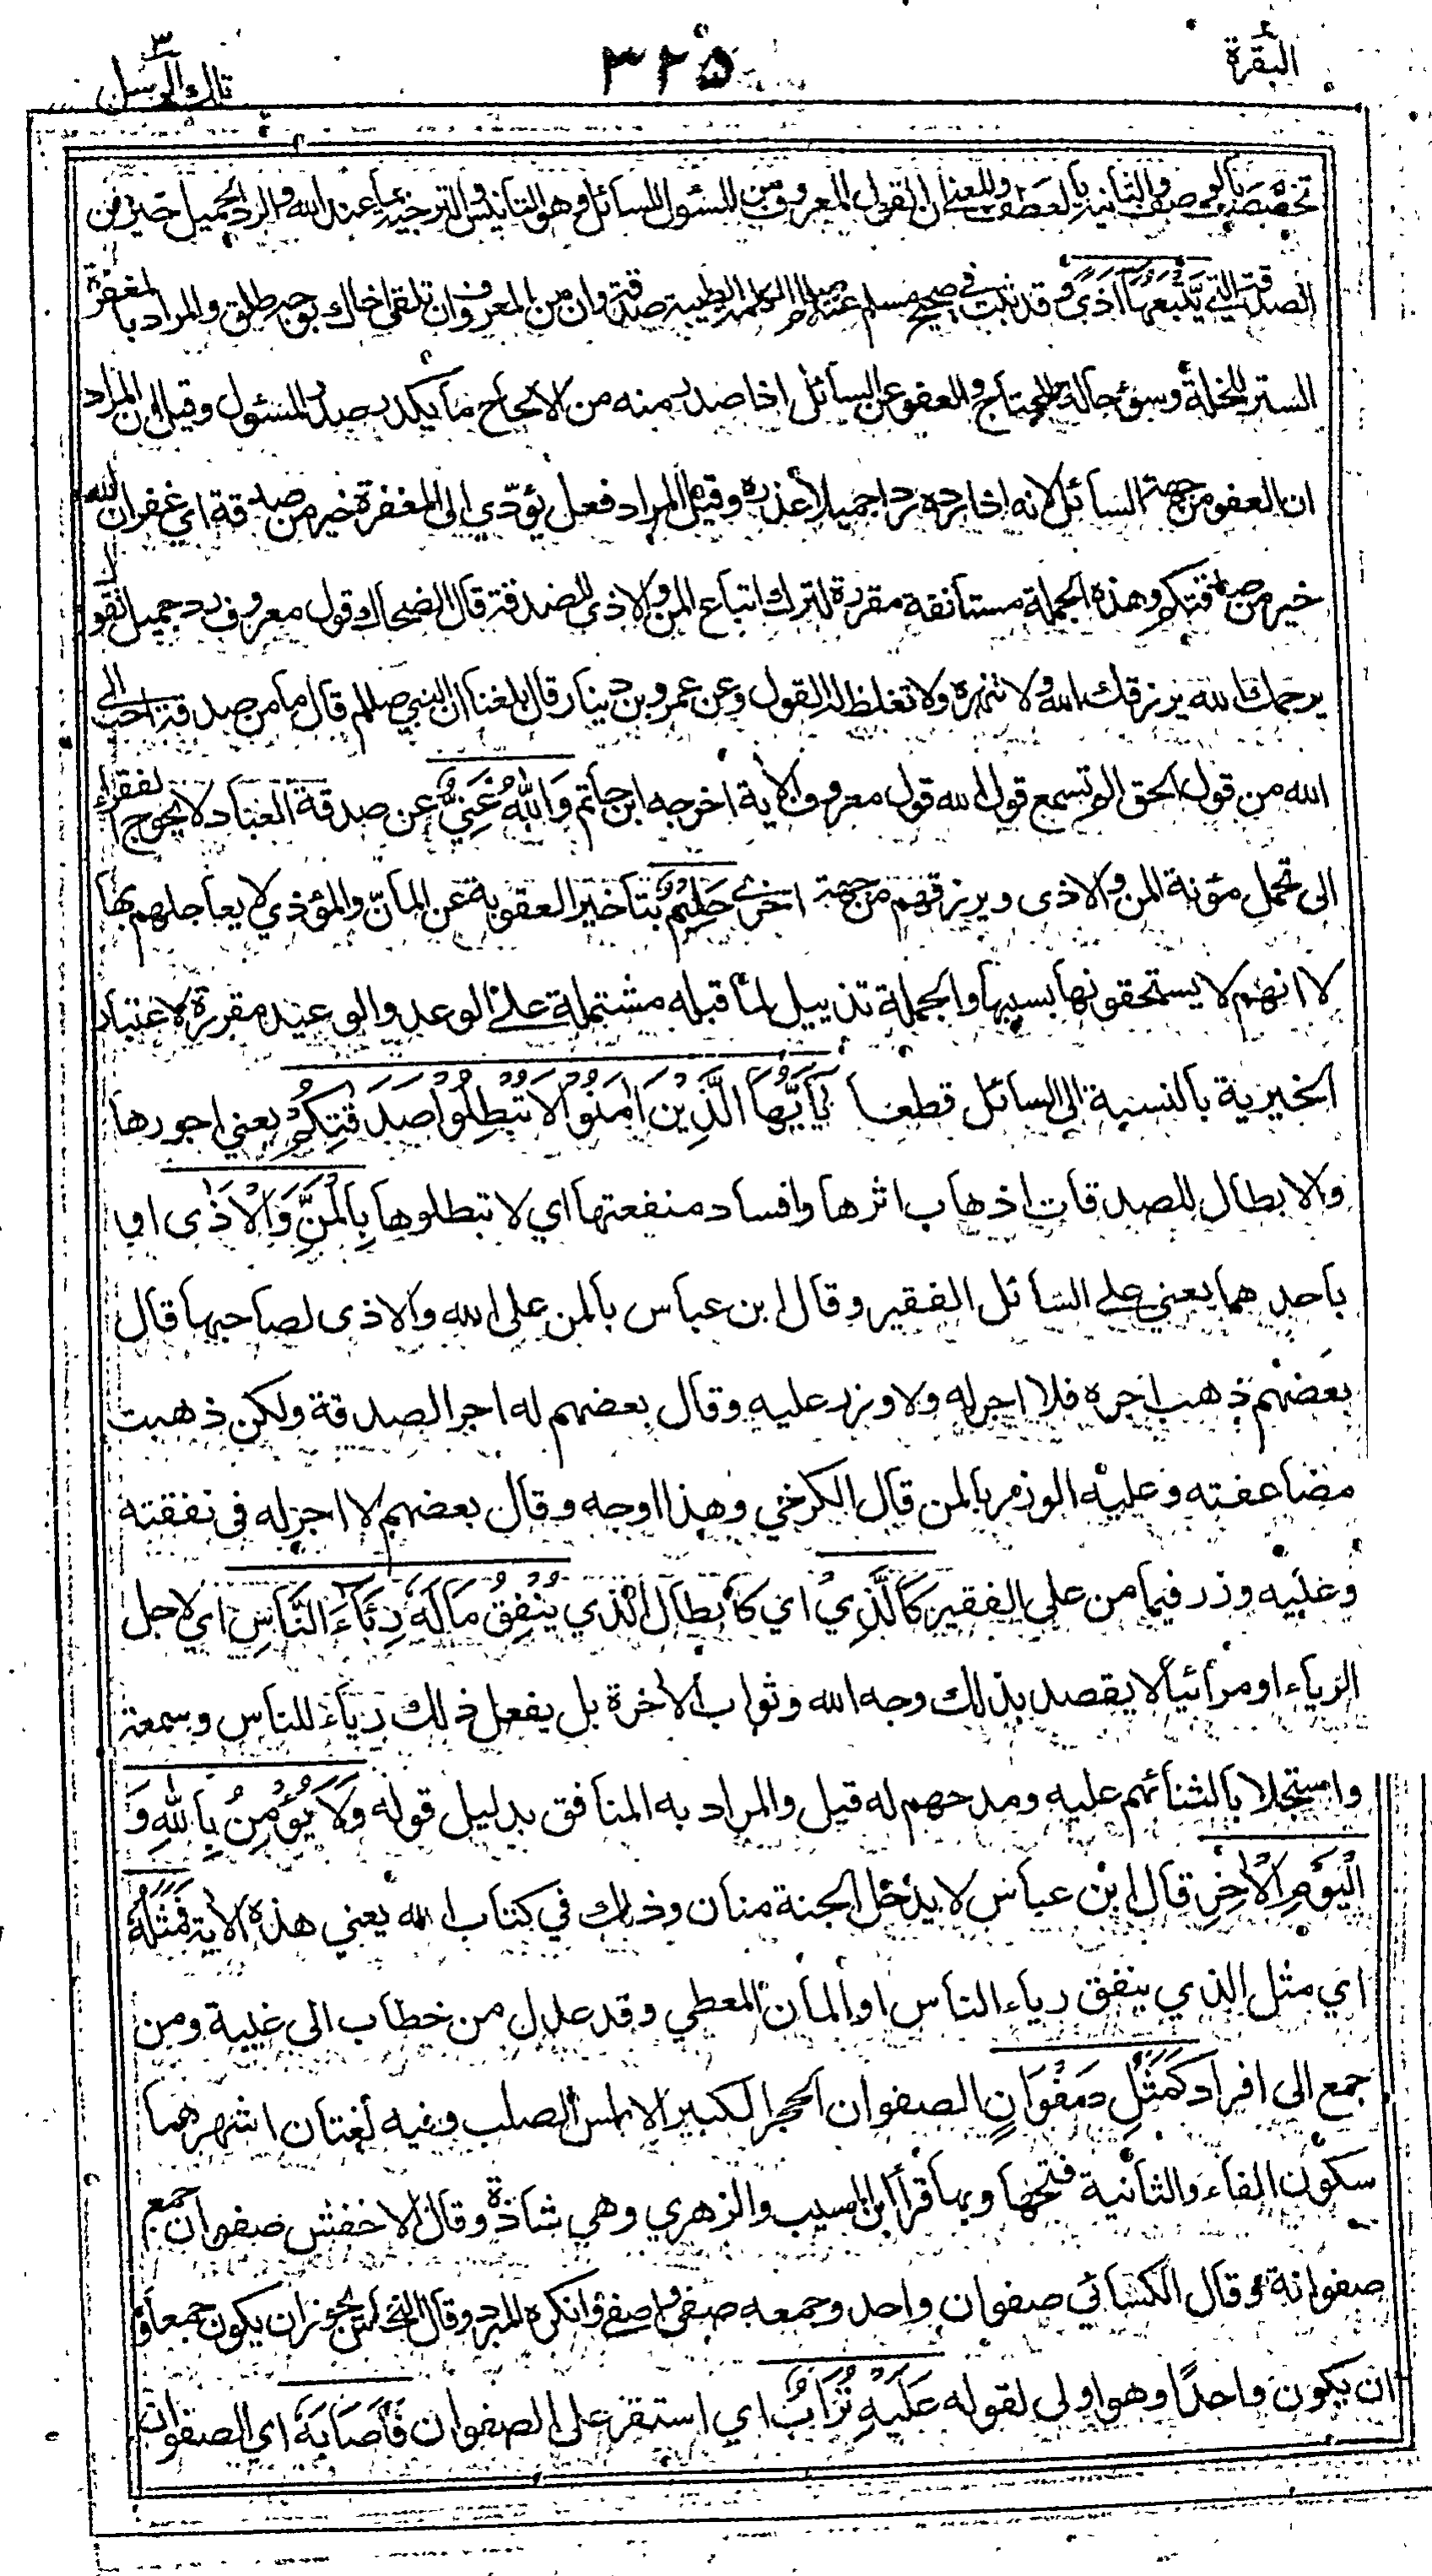 البقرة ٢
٣٢٥
تلك الرسل ٣
تخصصت بالوصف والثانية بالعطف والمعنى ان القول المعروف من المسئول للسائل وهو التانيس والترجية بما عند الله والرد الجميل خير من
الصدقة التي يَّتْبَعُهَآ اَذًى وقد ثبت في صحيح مسلم عنه صللم الكلمة الطيبة صدقة وان من المعروف ان تلقى اخاك بوجه طلق والمراد بالمغفرة
الستر للخلة وسوء حالة المحتاج والعفو عن السائل اذا صدر منه من الالحاح ما يكدر صدر المسئول وقيل ان المراد
ان العفو من جهة السائل لانه اذا رده ردا جميلا عذره وقيل المراد فعل يؤدّي الى المغفرة خير من صدقة اي غفران الله
خير من صدقتكم وهذه الجملة مستانفة مقررة لترك اتباع المن والاذى للصدقة قال الضحاك قول معروف رد جميل تقول
يرحمك الله يرزقك الله ولا تنهره ولا تغلظ له القول وعن عمرو بن دينار قال بلغنا ان النبي صللم قال ما من صدقة احب الى
الله من قول الحق الم تسمع قول الله قول معروف الاية اخرجه ابن ابي حاتم وَاللّٰهُ غَنِيٌّ عن صدقة العباد لا يحوج الفقراء
الى تحمل مؤنة المن والاذى ويرزقهم من جهة اخرى حَلِيْمٌ بتاخير العقوبة عن المانّ والمؤذي لا يعاجلهم بها
لا انهم لا يستحقونها بسببها والجملة تذييل لما قبله مشتملة على الوعد والوعيد مقررة لاعتبار
الخيرية بالنسبة الى السائل قطعا يٰٓاَيُّهَا الَّذِيْنَ اٰمَنُوْا لَا تُبْطِلُوْا صَدَقٰتِكُمْ يعني اجورها
والابطال للصدقات اذهاب اثرها وافساد منفعتها اي لا تبطلوها بِالْمَنِّ وَالْاَذٰى او
باحدهما يعني على السائل الفقير وقال ابن عباس بالمن على الله والاذى لصاحبها قال
بعضهم ذهب اجره فلا اجر له ولا وزر عليه وقال بعضهم له اجر الصدقة ولكن ذهبت
مضاعفته وعليه الوزر بالمن قال الكرخي وهذا اوجه وقال بعضهم لا اجر له في نفقته
وعليه وزر فيما من على الفقير كَالَّذِيْ اي كابطال الذي يُنْفِقُ مَالَهٗ رِئَآءَ النَّاسِ اي لاجل
الرياء او مرائيا لا يقصد بذلك وجه الله وثواب الاخرة بل يفعل ذلك رياء للناس وسمعة
واستجلابا لثنائهم عليه ومدحهم له قيل والمراد به المنافق بدليل قوله وَلَا يُؤْمِنُ بِاللّٰهِ وَ
الْيَوْمِ الْاٰخِرِ قال ابن عباس لا يدخل الجنة منان وذلك في كتاب الله يعني هذه الاية فَمَثَلُهٗ
اي مثل الذي ينفق رياء الناس او المان المعطي وقد عدل من خطاب الى غيبة ومن
جمع الى افراد كَمَثَلِ صَفْوَانٍ الصفوان الحجر الكبير الاملس الصلب وفيه لغتان اشهرهما
سكون الفاء والثانية فتحها وبها قرأ ابن المسيب والزهري وهي شاذة وقال الاخفش صفوان جمع
صفوانة وقال الكسائي صفوان واحد وجمعه صفي واصفى وانكره المبرد وقال النحاس يجوز ان يكون جمعا و
ان يكون واحدًا وهو اولى لقوله عَلَيْهِ تُرَابٌ اي استقر على الصفوان فَاَصَابَهٗ اي الصفوان